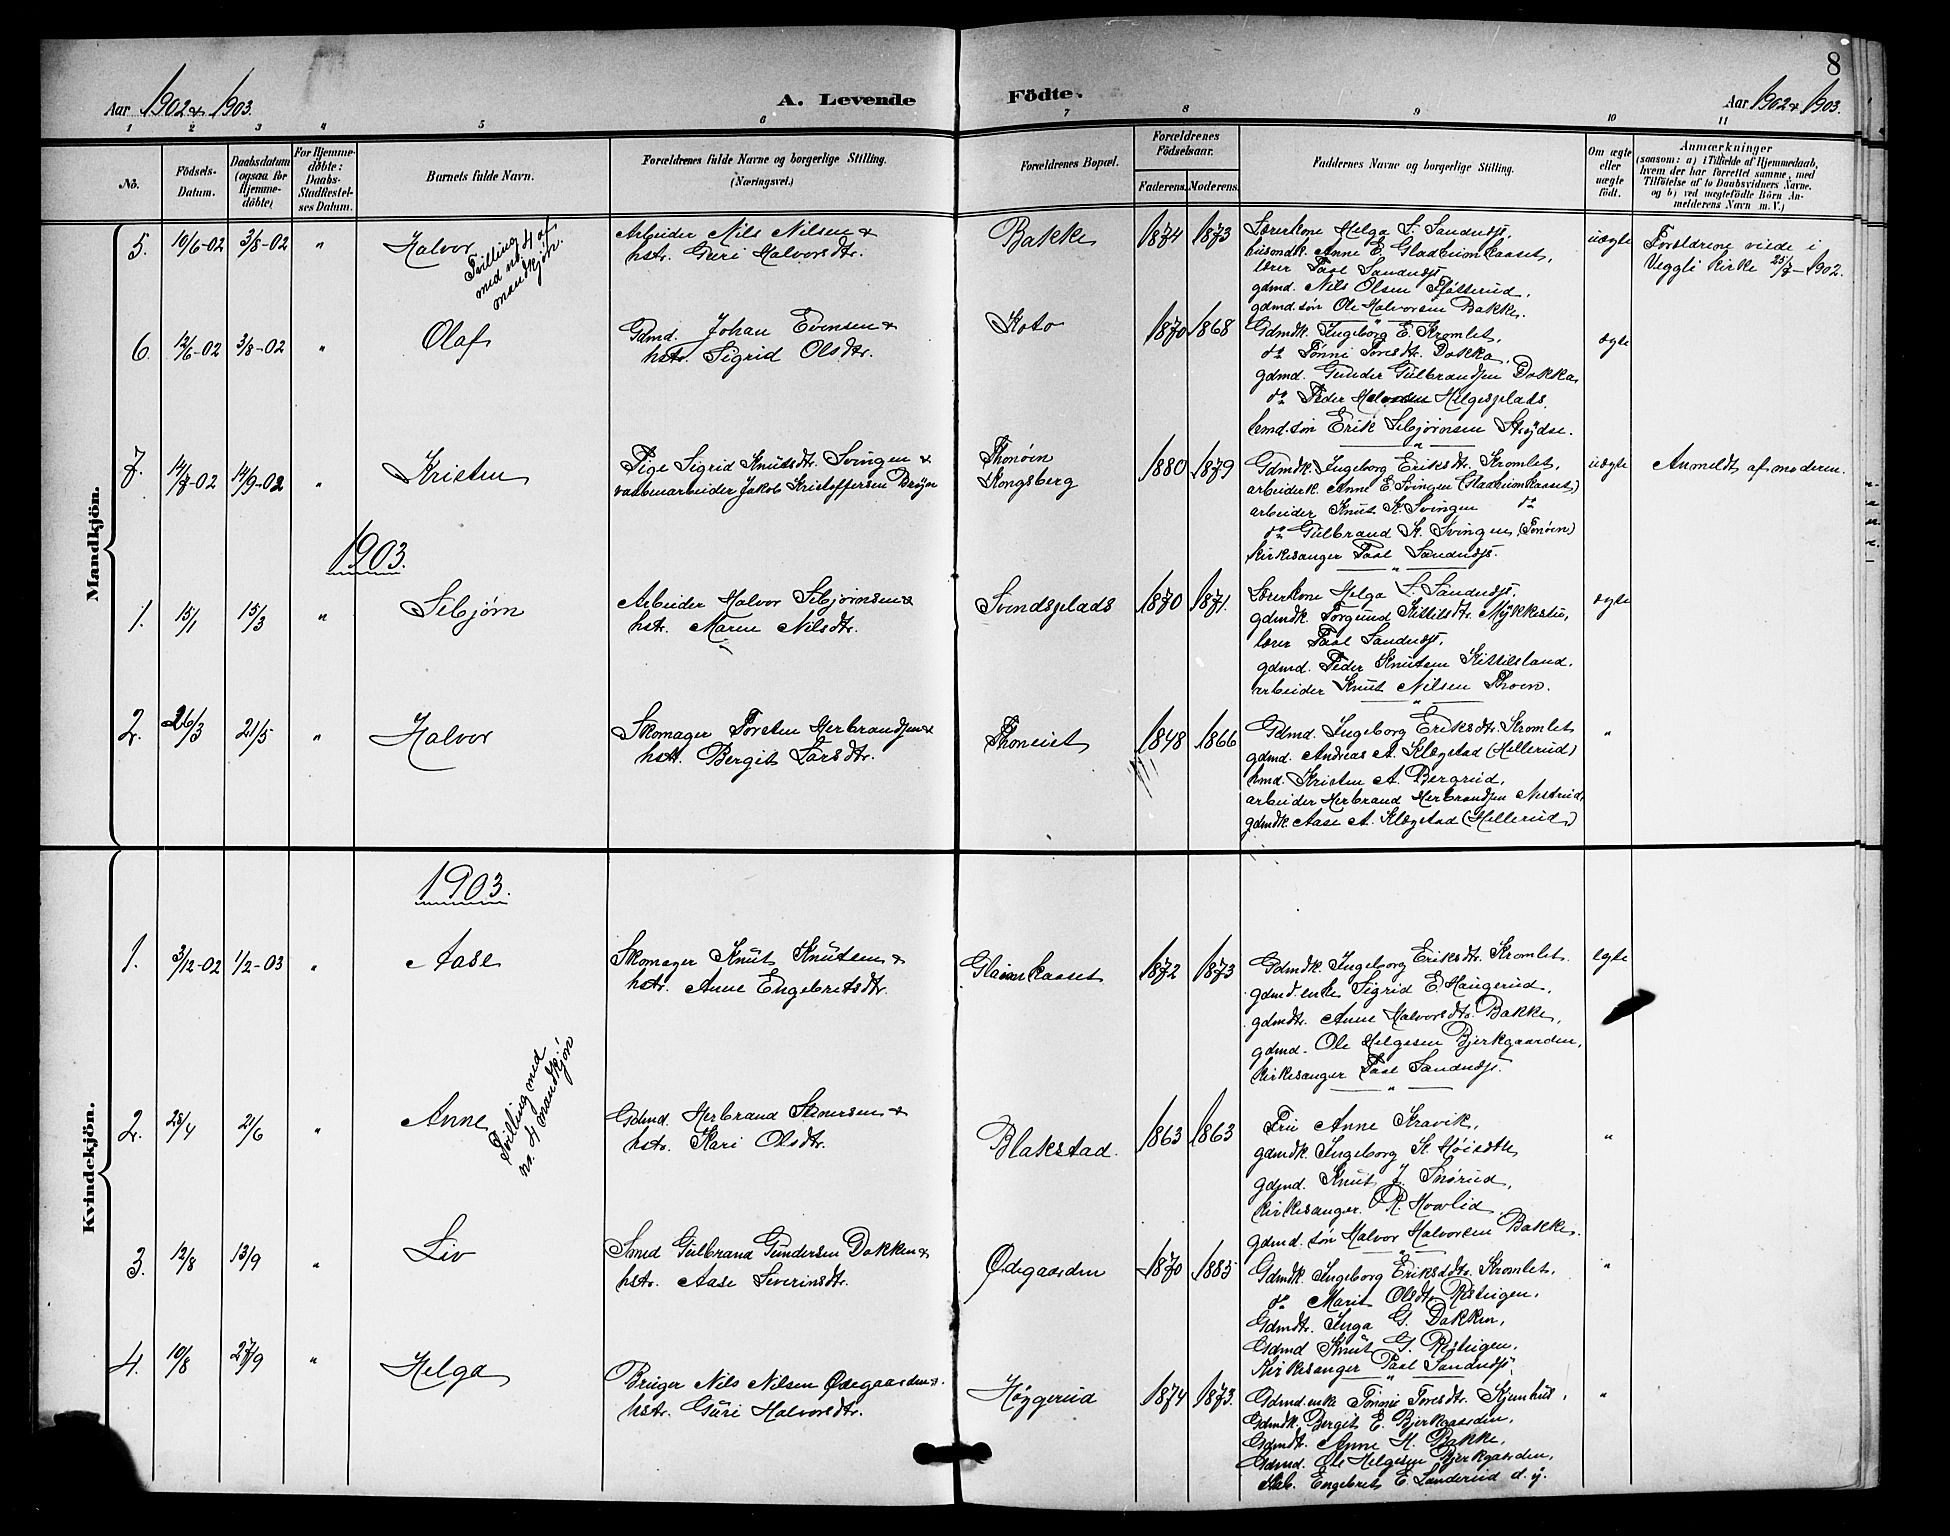 8
Aar 1902 & 1903.
A. Levende Födte.
Aar 1902 & 1903.
1 2 3 4 5 6 7 8 9 10 11
No.
Födsels-Datum.
Daabsdatum (ogsaa for Hjemme-döbte)
For Hjemme-döbte: Daabs-Stadfestel-ses Datum.
Barnets fulde Navn.
Forældrenes fulde Navne og borgerlige Stilling. (Næringsvei.)
Forældrenes Bopæl.
Forældrenes Födselsaar.
Faderens. Moderens.
Faddernes Navne og borgerlige Stilling.
Om ægte eller uægte födt.
Anmærkninger
(saasom: a) i Tilfælde af Hjemmedaab,
hvem der har forrettet samme, med
Tilföielse af to Daabsvidners Navne.
og b) ved uægtefödte Börn An-
melderens Navn m. V.)
Mandkjön.
5. 10/6-02 3/8-02 " Halvor
Tvilling
med no. 4 af
mandkjøn.
Arbeider Nils Nilsen &
hstr. Guri Halvorsdtr.
Bakke 1874 1873
Lærerkone Helga S. Sandnes,
husmdk. Anne E. Gladheimkaaset,
lærer Paal Sandnes,
gdmd. Nils Olsen
gdmd. søn Ole Halvorsen Bakke.
uægte
Forældrene viede i
Veggli kirke 25/7-1902.
6. 12/6-02 3/8-02 " Olaf
Gdmd. Johan Evensen &
hstr. Sigrid Olsdtr.
Koto 1870 1868
Gdmdk. Ingeborg E. Kromlet,
do Tönni Toresdtr. Dokka,
gdmd. Gunder Gulbrandsen Dokka,
do Peder Halvorsen Helgesplads,
hmd. søn Erik Sebjørnsen
ægte
7. 14/7-02 14/9-02 " Kristen
Pige Sigrid Knutsdtr. Svingen &
vaabenarbeider Jakob Kristoffersen
Thonöen
Kongsberg
1880 1879
Gdmdk. Ingeborg Eriksdtr. Kromlet,
arbeiderk. Anne E. Svingen (Gladheimkaaset)
arbeider Knut K. Svingen do
do Gulbrand K. Svingen (Tonöen)
kirkesanger Paal Sandnes.
uægte
Anmeldt af moderen.
1903.
1. 15/1 15/3 " Sebjørn
Arbeider Halvor Sebjørnsen &
hstr. Maren Nilsdtr.
Svendsplads 1870 1871.
Lærerkone Helga S. Sandnes,
gdmdk. Torgund Kittilsdtr. Mykkestu,
lærer Paal Sandnes,
gdmd. Peder Knutsen Kittilsland,
arbeider Knut Nilsen Thoen.
ægte
2. 26/3 21/5 " Halvor
Skomager Torsten Herbrandsen &
hstr. Bergit Larsdtr.
Thoneiet 1848 1866
Gdmd. Ingeborg Eriksdtr. Kromlet
gdmd. Andreas A. Klægstad (Hellerud)
hmd. Kristen A. Bergrud,
arbeider Herbrand Herbrandsen Nestrud,
gdmdk. Aase A. Klægstad (Hellerud)
"
Kvindekjön.
1903.
1. 3/12-02 1/2-03 " Aase
Skomager Knut Knutsen &
hstr. Anne Engebretsdtr.
1872 1873
Gdmdk. Ingeborg Eriksdtr. Kromlet.
gdmd. enke Sigrid E. Haugerud,
gdmdtr. Anne Halvorsdtr. Bakke,
gdmd. Ole Helgesen Bjerkgaarden,
kirkesanger Paal Sandnes.
egte
2. 28/4 21/6 " Anne
Tvilling med
no. 4 mandkjøn
Gdmd. Herbrand Steinersen &
hstr. Kari Olsdtr.
Blakstad. 1863 1863
Fru Anne Kravik,
gdmdk. Ingeborg K.
gdmd. Knut J. Snörud,
kirkesanger R. Hovlid
gdmd. søn Halvor Halvorsen Bakke.
"
3. 12/8 13/9 " Liv
Smed Gulbrand Gundersen Dokken &
hstr. Aase Severinsdtr.
Ødegaarden 1870 1885
Gdmdk. Ingeborg Eriksdtr. Kromlet,
do Marit Olsdtr. Risteigen,
Gdmdtr. Inga G. Dokken,
Gdmd Knut G. Risteigen,
Kirkesanger Paal Sandnes
"
4. 10/8 27/9 " Helga
Bruger Nils Nilsen Ødegaarden &
hstr. Guri Halvorsdtr.
Høygerud 1874 1873.
Gdmd. enke Tönne Toresdtr. Kjemhus,
Gdmdk. Bergit E. Bjerkgaarden,
Gdmdtr. Anne H. Bakke,
Gdmd. Ole Helgesen Bjerkgaarden,
Engebret E. Landerud d. y.
"